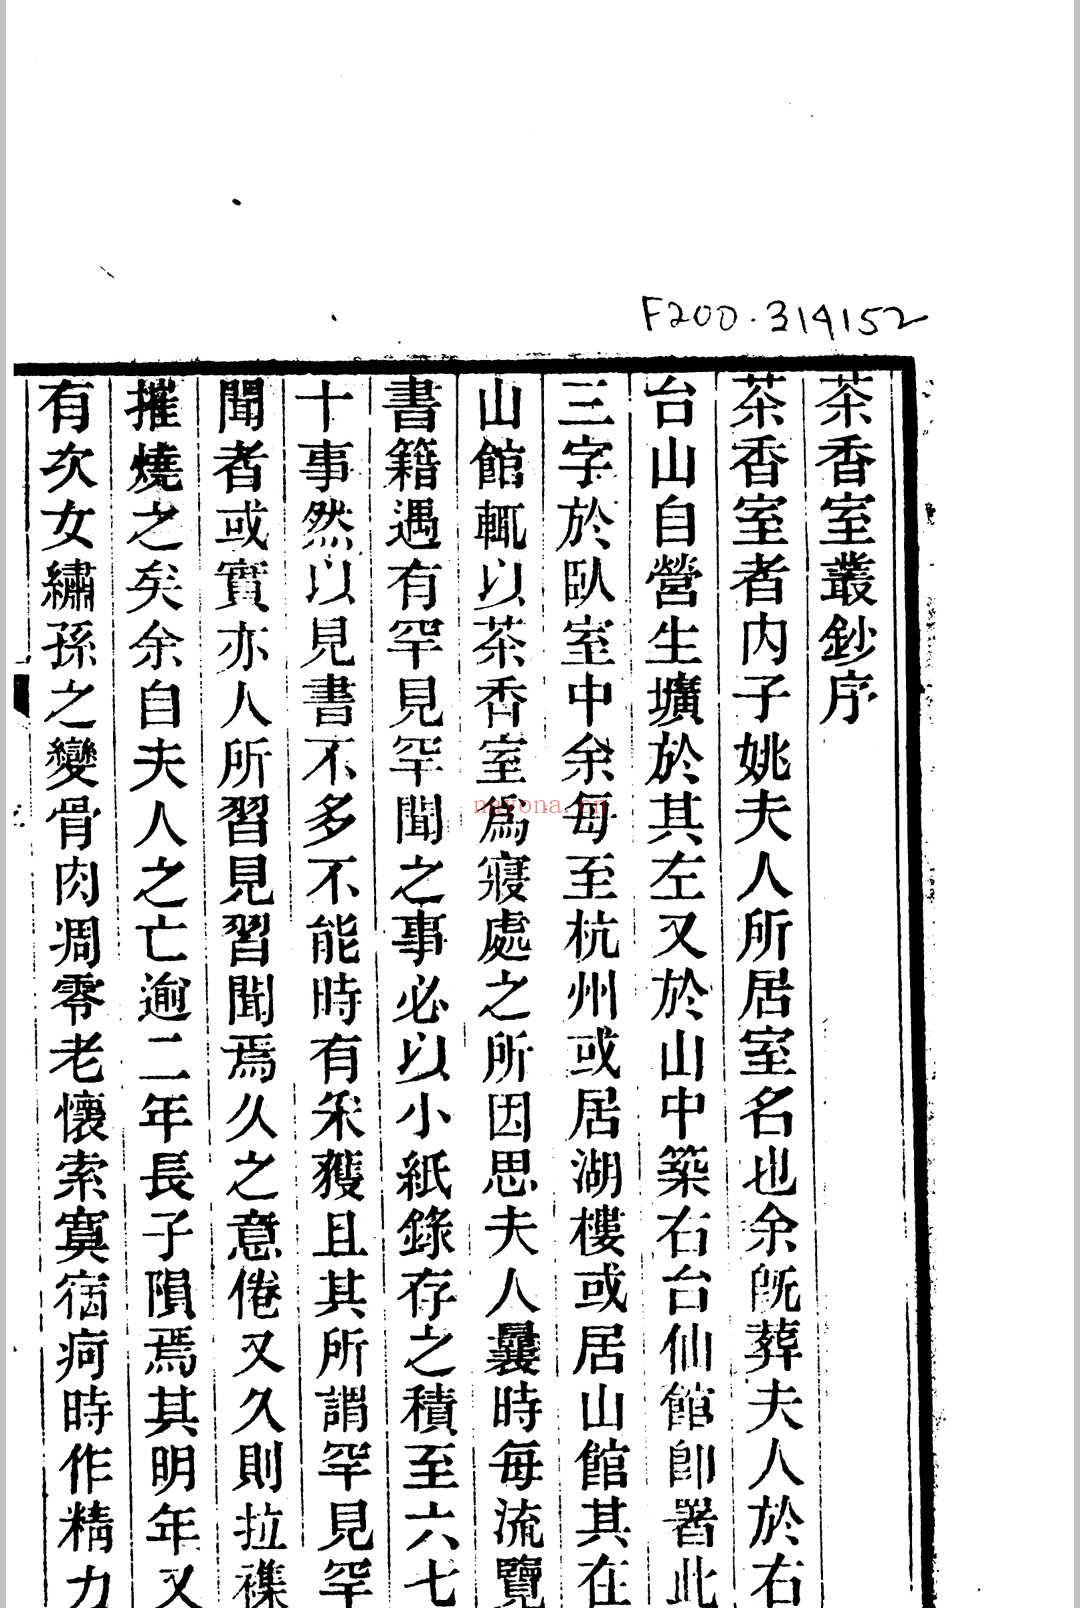 F200.314152
茶香室叢鈔序
茶香室者內子姚夫人所居室名也余旣葬夫人於右
台山自營生壙於其左又於山中築右台仙館卽署此
三字於臥室中余每至杭州或居湖樓或居山館其在
山館輒以茶香室爲寢處之所因思夫人曩時每流覽
書籍遇有罕見罕聞之事必以小紙錄存之積至六七
十事然以見書不多不能時有采獲且其所謂罕見罕
聞者或實亦人所習見習聞焉久之意倦又久則拉襍
摧燒之矣余自夫人之亡逾二年長子隕焉其明年又
有次女繡孫之變骨肉凋零老懷索寞宿疴時作精力